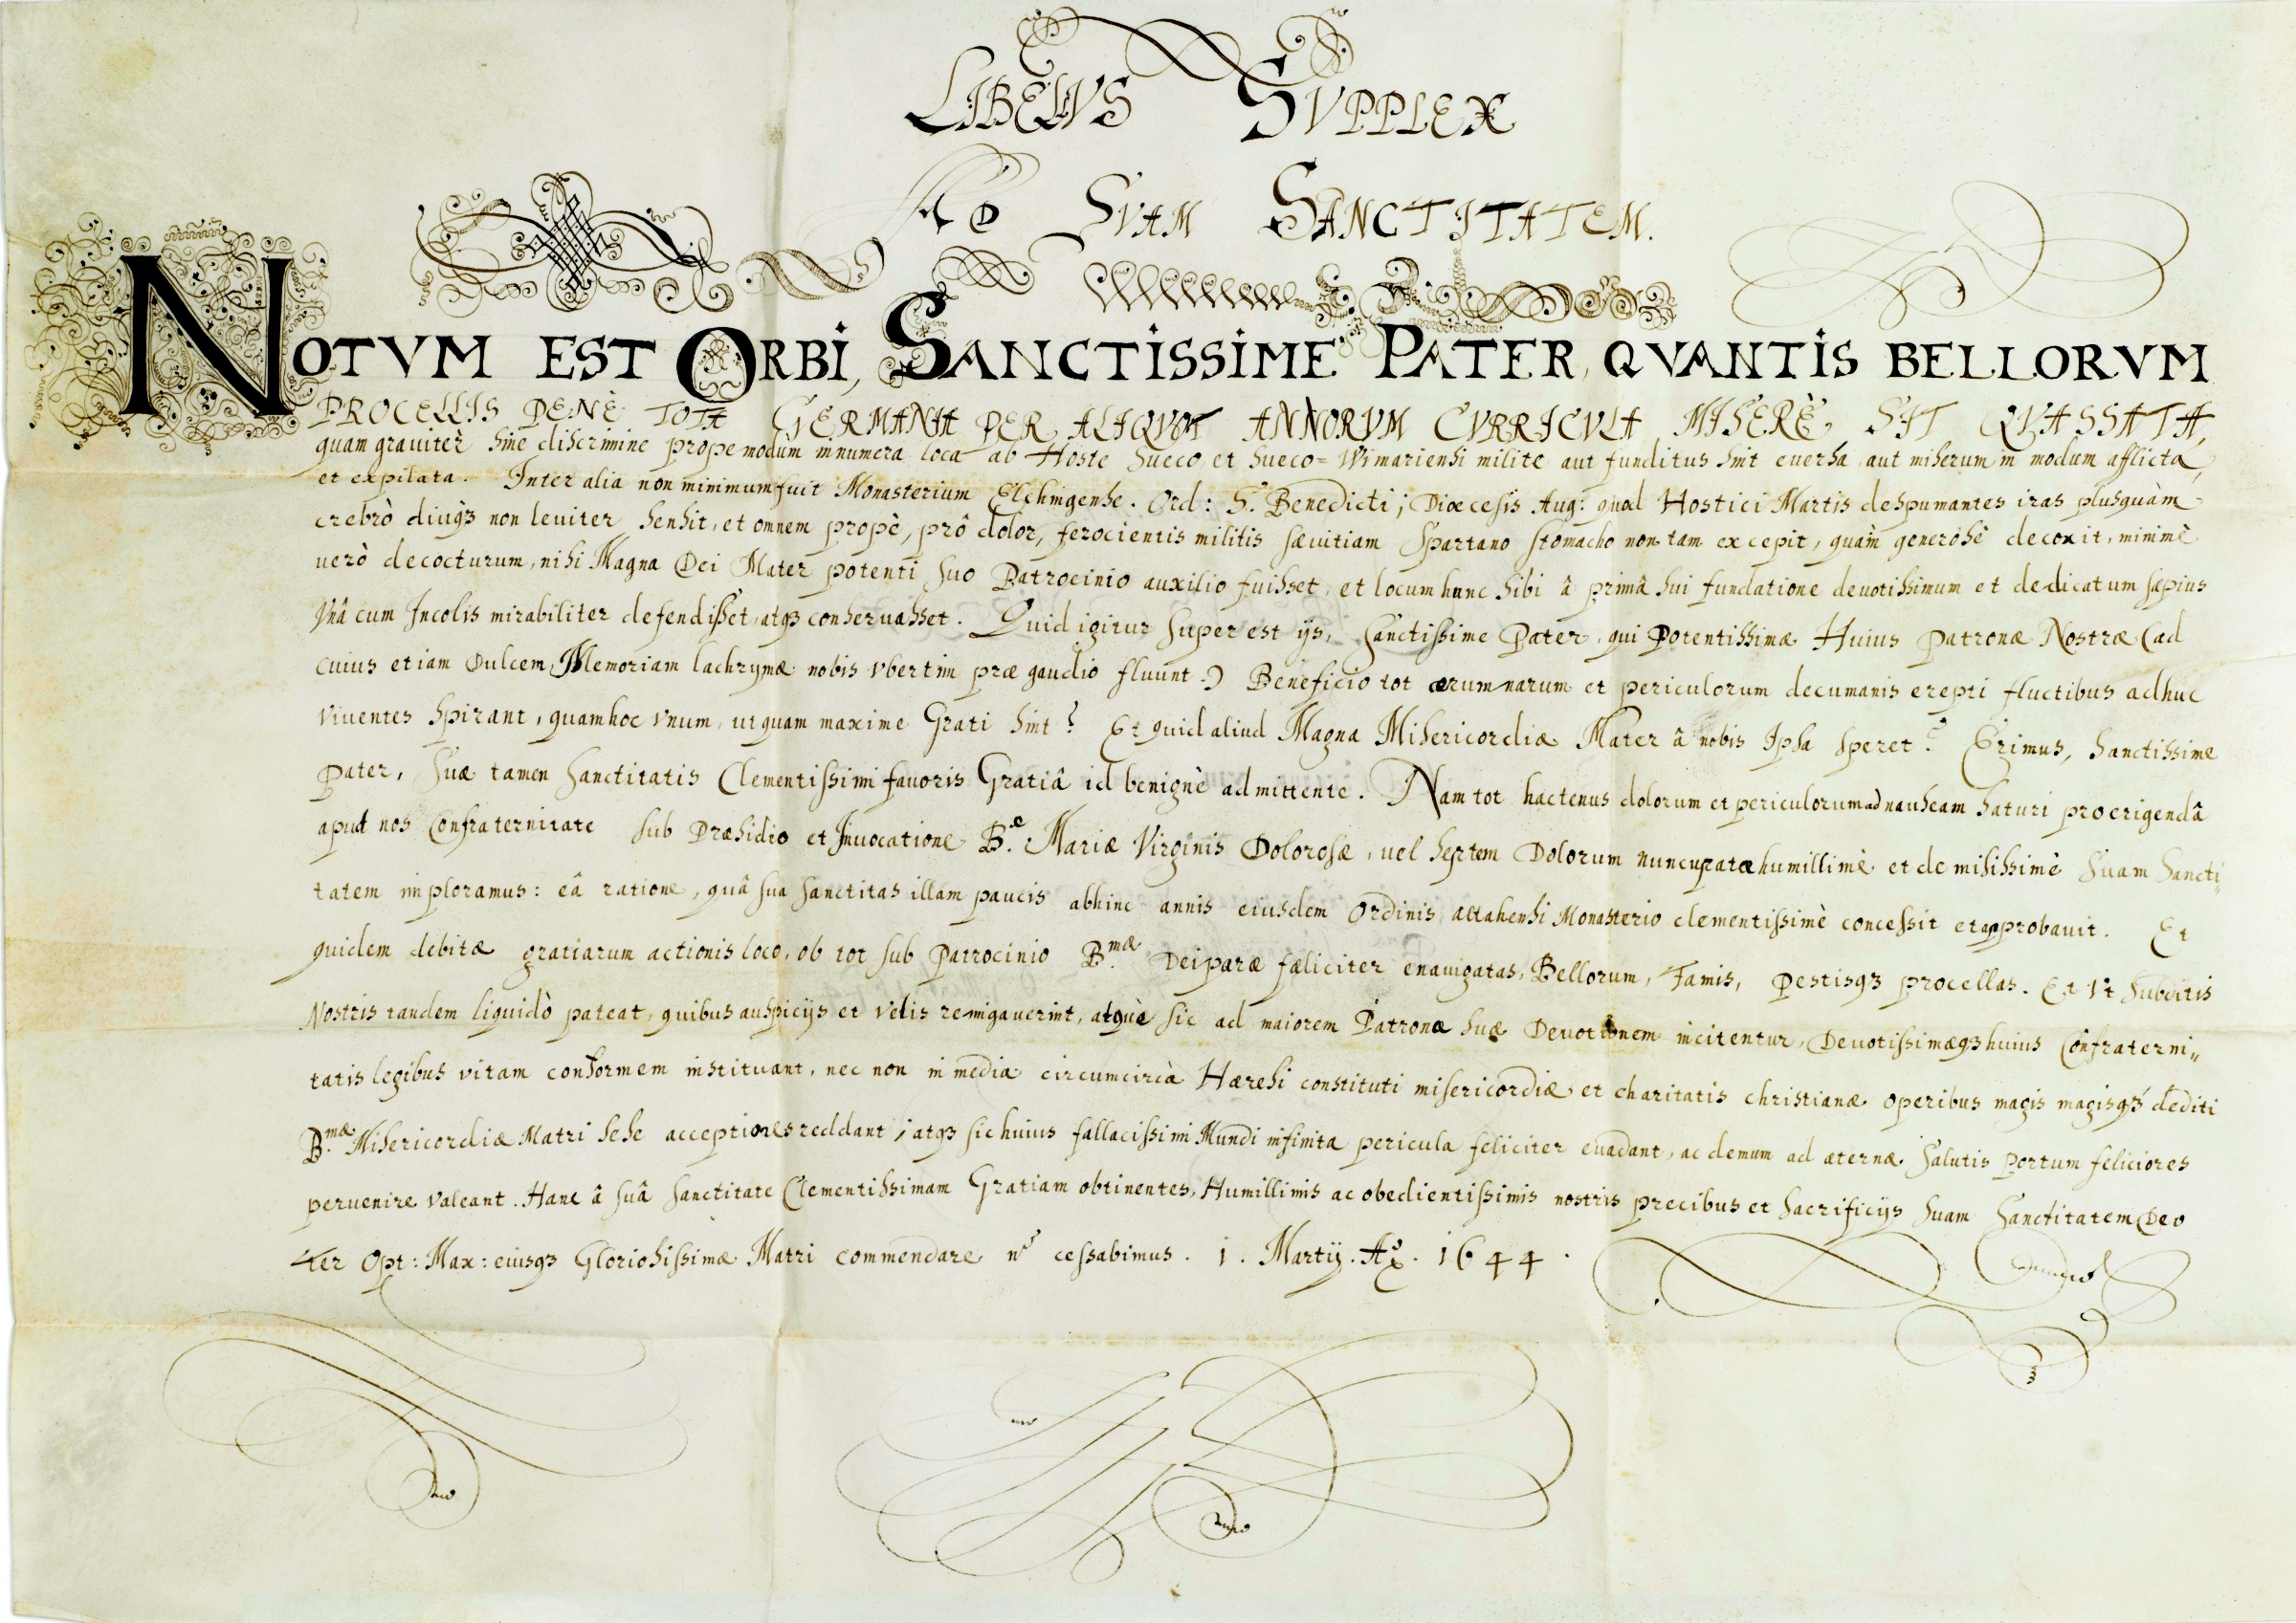 LIBELLVS SVPPLEX
AD SVAM SANCTITATEM.
NOTVM EST ORBI, SANCTISSIME PATER, QVANTIS BELLORVM
PROCELLIS PENÈ TOTA GERMANIA PER ALIQVOT ANNORVM CVRRICVLA MISERÈ SIT QVASSATA,
quam grauiter sine discrimine propemodum innumera loca ab Hoste Sueco et Sueco=Wimariensi milite aut funditus sint euersa aut miserum in modum afflicta,
et expilata. Inter alia non minimum fuit Monasterium Elchingense. Ord: S. Benedicti; Diœcesis Aug: quod Hostici Martis despumantes iras plusquàm
crebrò diuq3 non leuiter sensit, et omnem propè, prô dolor, ferocientis militis sæuitiam Spartano stomacho non tam excepit, quàm generosè decoxit, minimè
uerò decocturum, nisi Magna Dei Mater potenti suo Patrocinio auxilio fuisset, et locum hunc sibi â primâ sui fundatione deuotissimum et dedicatum sæpius
Vnâ cum Incolis mirabiliter defendisset, atq3 conseruasset. Quid igitur superest ijs, Sanctissime Pater, qui Potentissimæ Huius Patronæ Nostræ (ad
cuius etiam Dulcem Memoriam lachrymæ nobis vbertim præ gaudio fluunt.) Beneficio tot ærumnarum et periculorum decumanis erepti fluctibus adhuc
viuentes spirant, quam hoc vnum, ut quam maxime Grati sint? Et quid aliud Magna Misericordiæ Mater â nobis Ipsa speret? Erimus, Sanctissime
Pater, Suæ tamen Sanctitatis Clementissimi fauoris Gratiâ id benignè admittente. Nam tot hactenus dolorum et periculorum ad nauseam saturi pro erigendâ
aput nos Confraternitate sub Præsidio et Inuocatione B.e Mariæ Virginis Dolorosæ, uel septem Dolorum nuncupatæ humillimè et demississimè Suam Sancti,,
tatem imploramus: eâ ratione, quâ sua Sanctitas illam paucis abhinc annis eiusdem Ordinis Altahensi Monasterio clementissimè concessit et approbauit. Et
quidem debitæ gratiarum actionis loco, ob tot sub Patrocinio B.mæ Deiparæ fæliciter enauigatas, Bellorum, Famis, Pestisq3 procellas. Et Vt Subditis
Nostris tandem liquidò pateat, quibus auspicijs et velis remigauerint, atquè sic ad maiorem Patronæ suæ Deuotionem incitentur, Deuotissimæq3 huius Confraterni,,
tatis legibus vitam conformem instituant, nec non in media circumcircà Hæresi constituti misericordiæ et charitatis christianæ operibus magis magisq3 dediti
B.mæ Misericordiæ Matri sese acceptiores reddant; atq3 sic huius fallacissimi Mundi infinita pericula feliciter euadant, ac demum ad æternæ Salutis Portum feliciores
peruenire valeant. Hanc â Suâ Sanctitate Clementissimam Gratiam obtinentes, Humillimis ac obedientissimis nostris precibus et Sacrificijs Suam Sanctitatem Deo
ter Opt: Max: eiusq3 Gloriosissimæ Matri commendare nō cessabimus. 1. Martij. Ao. 1644.